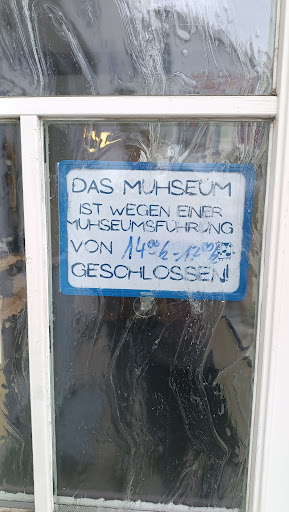 DAS MUHSEUM
IST WEGEN EINER
MUHSEUMSFÜHRUNG
VON 14⁰⁰h -
GESCHLOSSEN!